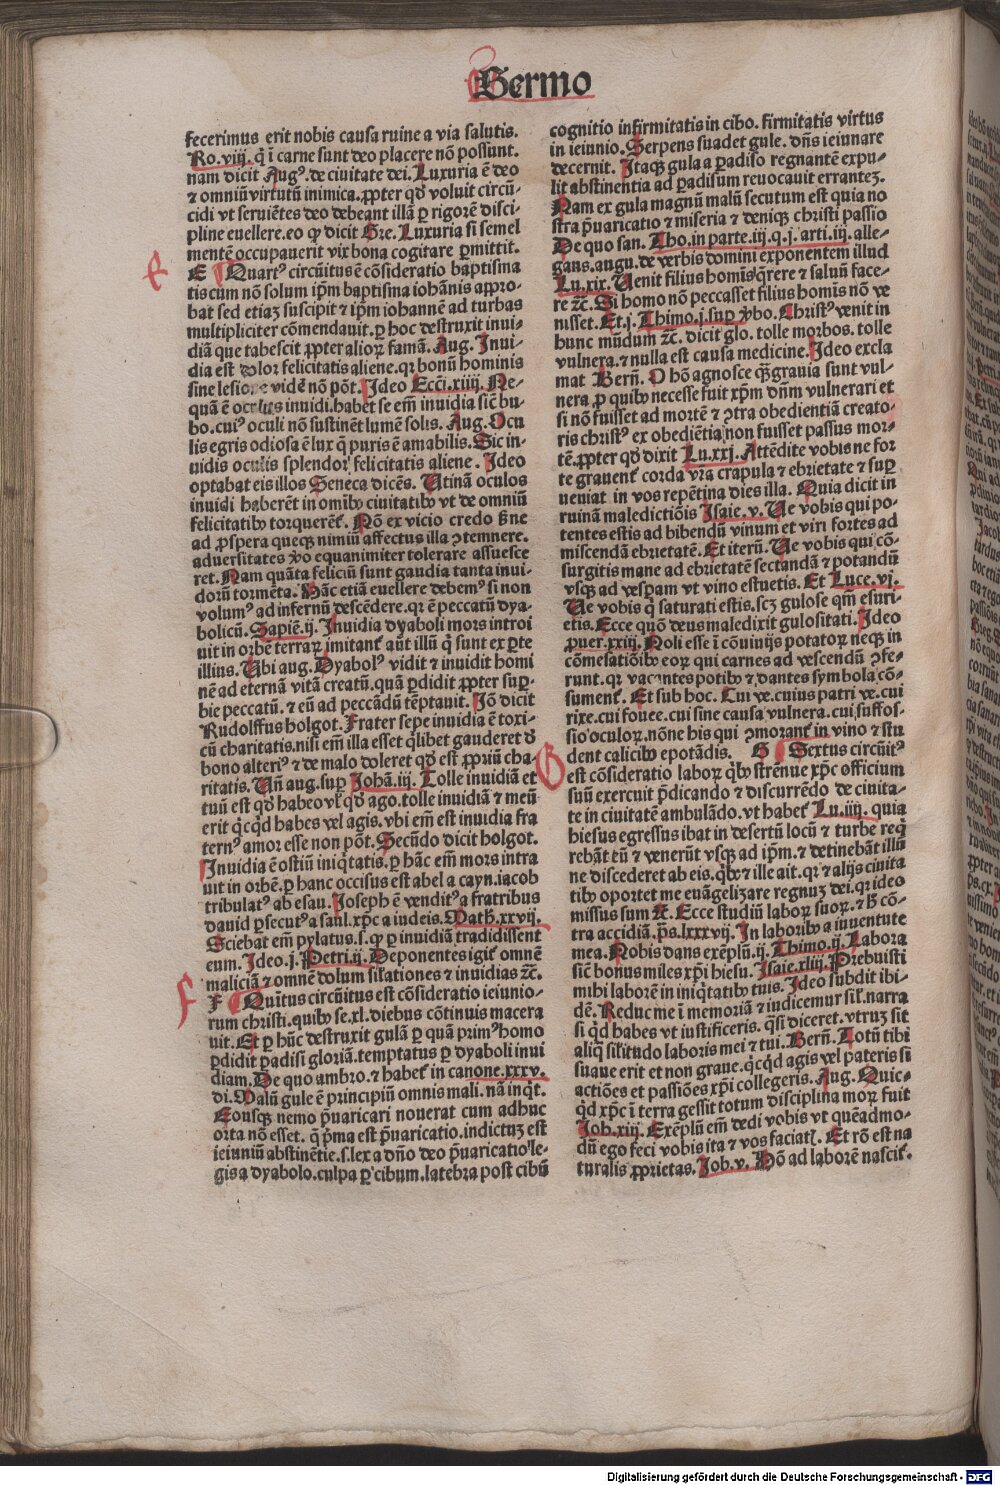 Sermo
fecerimus erit nobis causa ruine a via salutis.
Ro. viij. q̇ ī carne sunt deo placere nō possunt.
nam dicit Augꝰ. de ciuitate dei. Luxuria ē deo
⁊ omniū virtutū inimica. ꝓpter qd̛ voluit circū-
cidi vt seruiētes deo debeant illā ꝑ rigorē disci-
pline euellere. eo ꝙ dicit Gre. Luxuria si semel
mentē occupauerit vix bona cogitare ꝑmittit.
E Quartꝰ circūitus ē cōsideratio baptisma
tis cum nō solum ip̄m baptisma iohānis appro-
bat sed etiaꝫ suscipit ⁊ ip̄m iohannē ad turbas
multipliciter cōmendauit. ꝑ hoc destruxit inui-
diā que tabescit ꝓpter alioꝝ famā. Aug. Inui-
dia est dolor felicitatis aliene. qꝛ bonū hominis
sine lesione vidē nō pōt. Ideo Ecci. xiiij. Ne-
quā ē oculus inuidi. habet se em̄ inuidia sic̄ bu-
bo. cuiꝰ oculi nō sustinēt lumē solis. Aug. Ocu
lis egris odiosa ē lux q̄ puris ē amabilis. Sic in-
uidis oculis splendor felicitatis aliene. Ideo
optabat eis illos Seneca dicēs. Utinā oculos
inuidi haberēt in omībꝰ ciuitatibꝰ vt de omniū
felicitatibꝰ torquerēt̛. Nō ex vicio credo bn̄e
ad ꝓspera quecꝙ nimiū affectus illa ꝯtemnere.
aduersitates v̛o equanimiter tolerare assuesce
ret. Nam quāta feliciū sunt gaudia tanta inui-
dorū tormēta. Hāc etiā euellere debemꝰ si non
volumꝰ ad infernū descēdere. qꝛ ē peccatū dya-
bolicū. Sapiē. ij. Inuidia dyaboli mors introi
uit in orbē terraꝝ imitant̛ aūt illū q̇ sunt ex ꝑte
illius. Ubi aug. Dyabolꝰ vidit ⁊ inuidit homi
nē ad eternā vitā creatū. quā ꝑdidit ꝓpter suꝑ-
bie peccatū. ⁊ eū ad peccādū tēptauit. Iō dicit
Rudolffus holgot. Frater sepe inuidia ē toxi-
cū charitatis. nisi em̄ illa esset q̇libet gauderet d̛
bono alteriꝰ ⁊ de malo doleret qd̛ est ꝓpriū cha-
ritatis. Uñ aug. suꝑ Johā. iij. Tolle inuidiā et
tuū est qd̛ habeo vl̛ qd̛ ago. tolle inuidiā ⁊ meū
erit q̇cq̇d habes vel agis. vbi em̄ est inuidia fra
ternꝰ amor esse non pōt. Secūdo dicit holgot.
Inuidia ē ostiū iniq̇tatis. ꝑ hāc em̄ mors intra
uit in orbē. ꝑ hanc occisus est abel a cayn. iacob
tribulatꝰ ab esau. Joseph ē venditꝰ a fratribus
dauid ꝑsecutꝰ a saul. xp̄c a iudeis. Math̛. xxvij.
Sciebat em̄ pylatus. s. ꝙ ꝑ inuidiā tradidissent
eum. Ideo. j. Petri. ij. Deponentes igit̛ omnē
maliciā ⁊ omnē dolum sil̛ationes ⁊ inuidias ⁊c̄.
F Quītus circūitus est cōsideratio ieiunio-
rum christi. quibꝰ se. xl. diebus cōtinuis macera
uit. Et ꝑ hūc destruxit gulā ꝑ quā primꝰ homo
ꝑdidit ꝑadisi gloriā. temptatus ꝑ dyaboli inui
diam. De quo ambro. ⁊ habet̛ in canone. xxxv.
di. Malū gule ē principiū omnis mali. nā inq̇t.
Eousqꝫ nemo p̄uaricari nouerat cum adhuc
orta nō esset. q̄ p̄ma est p̄uaricatio. indictuꝫ est
ieiuniū abstinētie. s. lex a dño deo p̄uaricatio le-
gis a dyabolo. culpa ꝑ cibum. latebra post cibū
cognitio infirmitatis in cibo. firmitatis virtus
in ieiunio. Serpens suadet gule. dn̄s ieiunare
decernit. Itaqꝫ gula a ꝑadiso regnantē expu-
lit abstinentia ad ꝑadisum reuocauit erranteꝫ.
Nam ex gula magnū malū secutum est quia no
stra p̄uaricatio ⁊ miseria ⁊ deniqꝫ christi passio
De quo san. Tho. in parte. iij. q. j. arti. iij. alle-
gans. augu. de verbis domini exponentem illud
Lu. xix. Uenit filius homīs q̄rere ⁊ saluū face-
re ⁊c̄. Si homo nō peccasset filius homīs nō ve
nisset. Et. j. Thimo. j. suꝑ v̛bo. Christꝰ venit in
hunc mūdum ⁊c̄. dicit glo. tolle morbos. tolle
vulnera. ⁊ nulla est causa medicine. Ideo excla
mat Bern̄. O hō agnosce qꝫ̄ grauia sunt vul-
nera ꝓ quibꝰ necesse fuit xp̄m dn̄m vulnerari et
si nō fuisset ad mortē ⁊ ꝯtra obedientiā creato-
ris christꝰ ex obediētia non fuisset passus mor-
tē. ꝓpter qd̛ dixit Lu. xxj. Attēdite vobis ne for
te grauent̛ corda vr̄a crapula ⁊ ebrietate ⁊ suꝑ
ueniat in vos repētina dies illa. Quia dicit in
ruinā maledictiōis Isaie. v. Ue vobis qui po-
tentes estis ad bibendū vinum et viri fortes ad
miscendā ebrietatē. Et iterū. Ue vobis qui cō-
surgitis mane ad ebrietatē sectandā ⁊ potandū
vsqꝫ ad vesꝑam vt vino estuetis. Et Luce. vj.
Ue vobis q̇ saturati estis. scꝫ gulose qm̄ esuri-
etis. Ecce quō deus maledixit gulositati. Ideo
ꝓuer. xxiij. Noli esse ī cōuiuijs potatoꝝ neqꝫ in
cōmesatiōibꝰ eoꝝ qui carnes ad vescendū ꝯfe-
runt. qꝛ vacantes potibꝰ ⁊ dantes symbola cō-
sument̛. Et sub hoc. Cui ve. cuius patri ve. cui
rixe. cui fouee. cui sine causa vulnera. cui suffos-
sio oculoꝝ. nōne his qui ꝯmorant̛ in vino ⁊ stu
dent calicibꝰ epotādis. G Sextus circūitꝰ
est cōsideratio laboꝝ q̇bꝰ strēnue xp̄c officium
suū exercuit p̄dicando ⁊ discurrēdo de ciuita-
te in ciuitatē ambulādo. vt habet̛ Lu. iiij. quia
hiesus egressus ibat in desertū locū ⁊ turbe req̇
rebāt eū ⁊ venerūt vsqꝫ ad ip̄m. ⁊ detinebāt illū
ne discederet ab eis. q̇bꝰ ⁊ ille ait. qꝛ ⁊ alijs ciuita
tibꝰ oportet me euāgelizare regnuꝫ dei. qꝛ ideo
missus sum ⁊c̄. Ecce studiū laboꝝ suoꝝ. ⁊ h̛ cō-
tra accidiā. ps̄. lxxxvij. In laboribꝰ a iuuentute
mea. Nobis dans exēplū. ij. Thimo. ij. Labora
sic̄ bonus miles xp̄i hiesu. Isaie. xliij. Prebuisti
mihi laborē in iniq̇tatibꝰ tuis. Ideo subdit ibi-
dē. Reduc me ī memoriā ⁊ iudicemur sil̛. narra
si q̇d habes vt iustificeris. q̄si diceret. vtruꝫ sit
aliq̇ sil̛itudo laboris mei ⁊ tui. Bern̄. Totū tibi
suaue erit et non graue. q̇cq̇d agis vel pateris si
actiōes et passiōes xp̄i collegeris. Aug. Quic-
q̇d xp̄c ī terra gessit totum disciplina moꝝ fuit
Joh. xiij. Exēplū em̄ dedi vobis vt quēadmo-
dū ego feci vobis ita ⁊ vos faciatꝭ. Et rō est na
turalis ꝓprietas. Job. v. Hō ad laborē nascit̛.
Digitalisierung gefördert durch die Deutsche Forschungsgemeinschaft - DFG